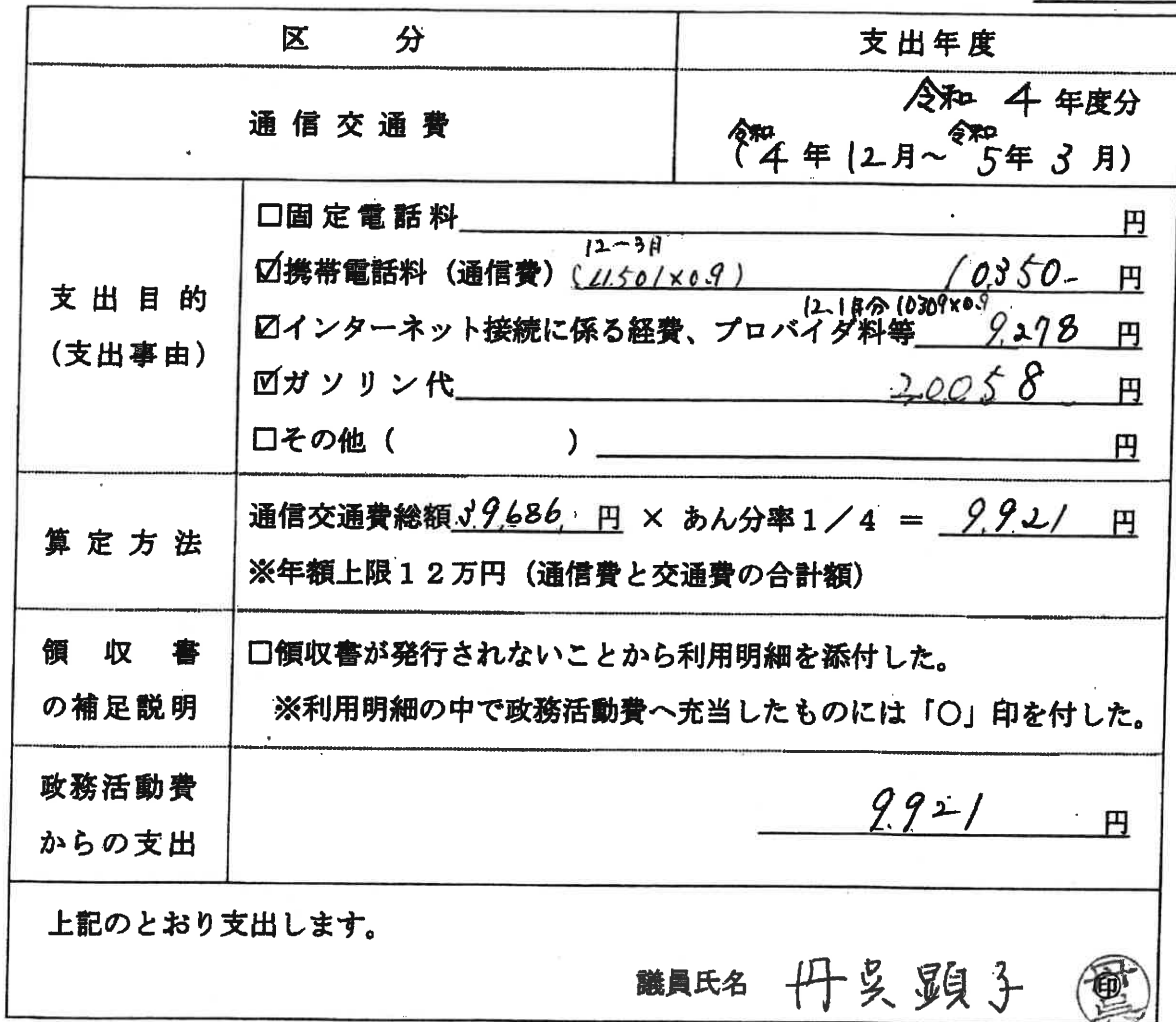 区 分
支出年度
通信交通費
令和 4 年度分
(令和4年12月～令和5年3月)
支出目的
(支出事由)
□固定電話料 円
12-3月
☑携帯電話料(通信費)(11501×0.9) 10350- 円
12.1月分 10309×0.9
☑インターネット接続に係る経費、プロバイダ料等 9,278 円
☑ガソリン代 20058 円
□その他( ) 円
算定方法
通信交通費総額 39,686 円 × あん分率1/4 = 9,921 円
※年額上限12万円(通信費と交通費の合計額)
領収書
の補足説明
□領収書が発行されないことから利用明細を添付した。
※利用明細の中で政務活動費へ充当したものには「○」印を付した。
政務活動費
からの支出
9,921 円
上記のとおり支出します。
議員氏名 丹呉顕子 印